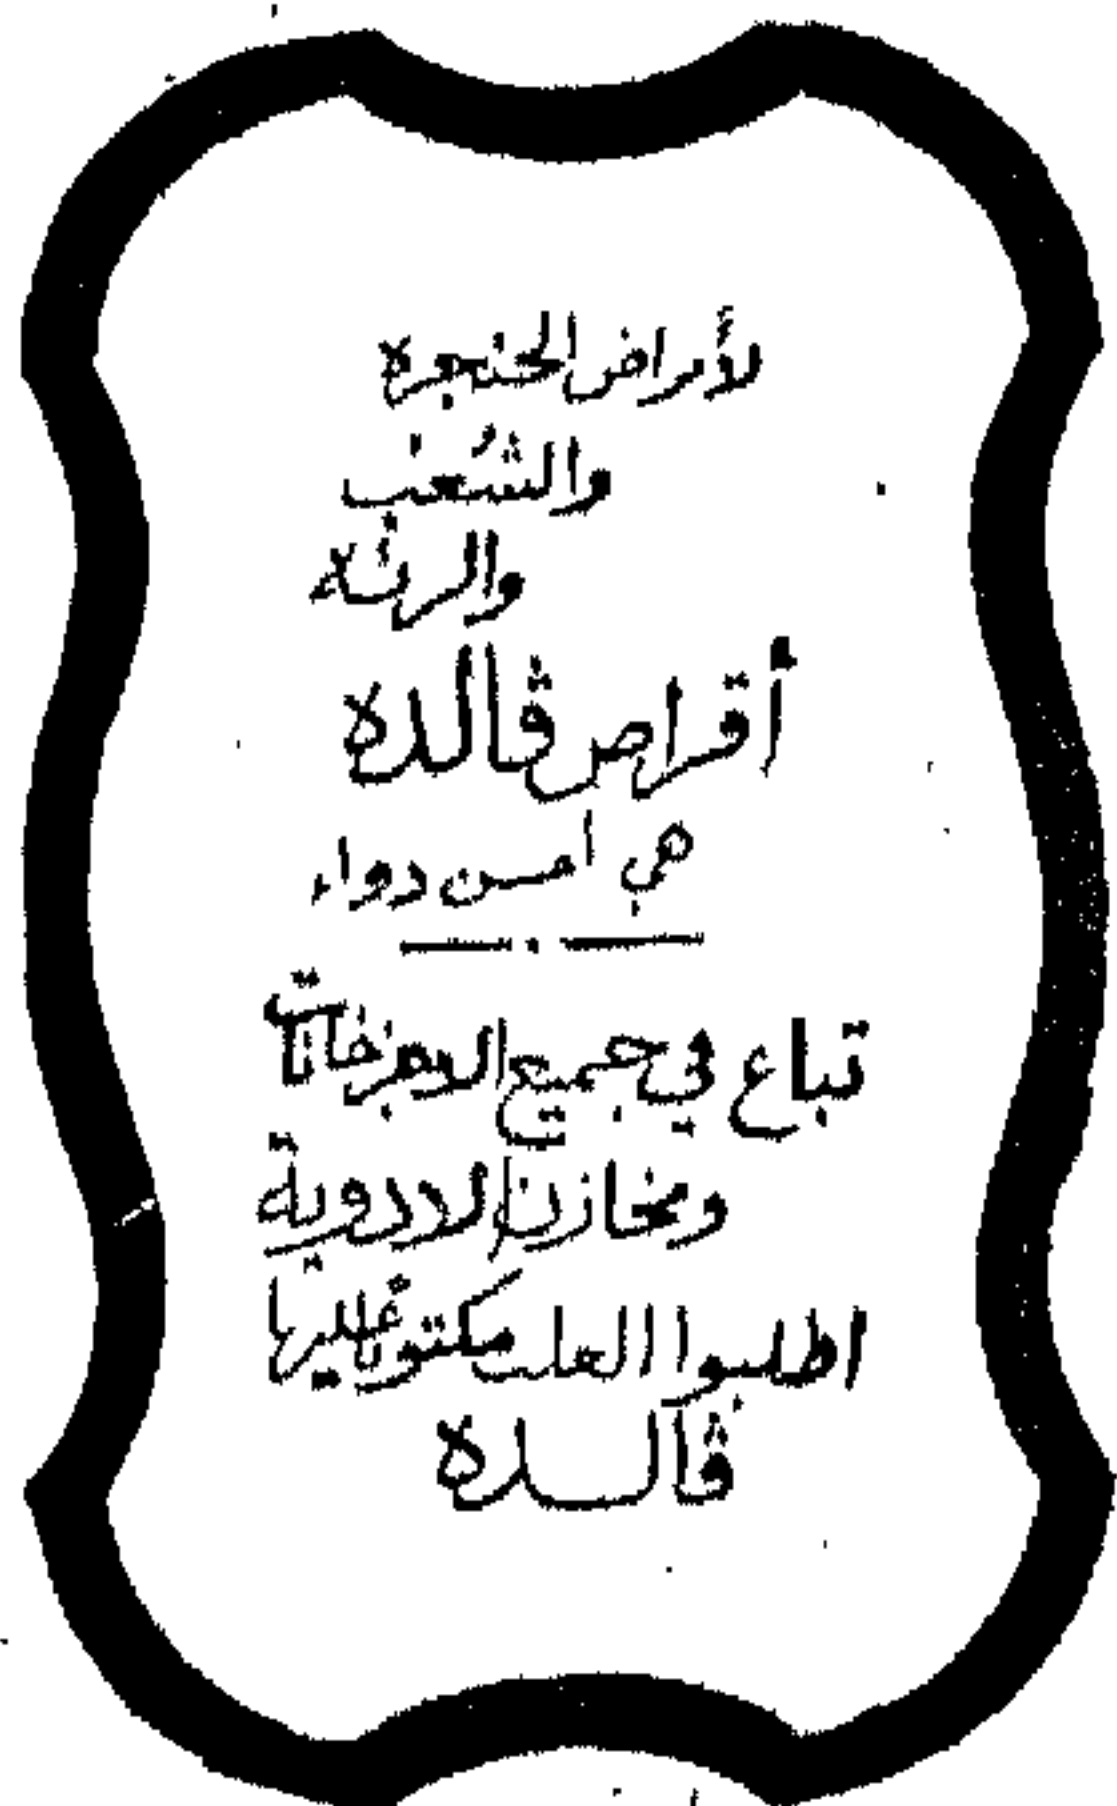 لأمراض الحنجرة
والشُعب
والرئة
أقراص ڤالده
هي احسن دواء
تباع في جميع الاجزخانات
ومخازن الادوية
اطلبوا العلب مكتوباً عليها
ڤالده